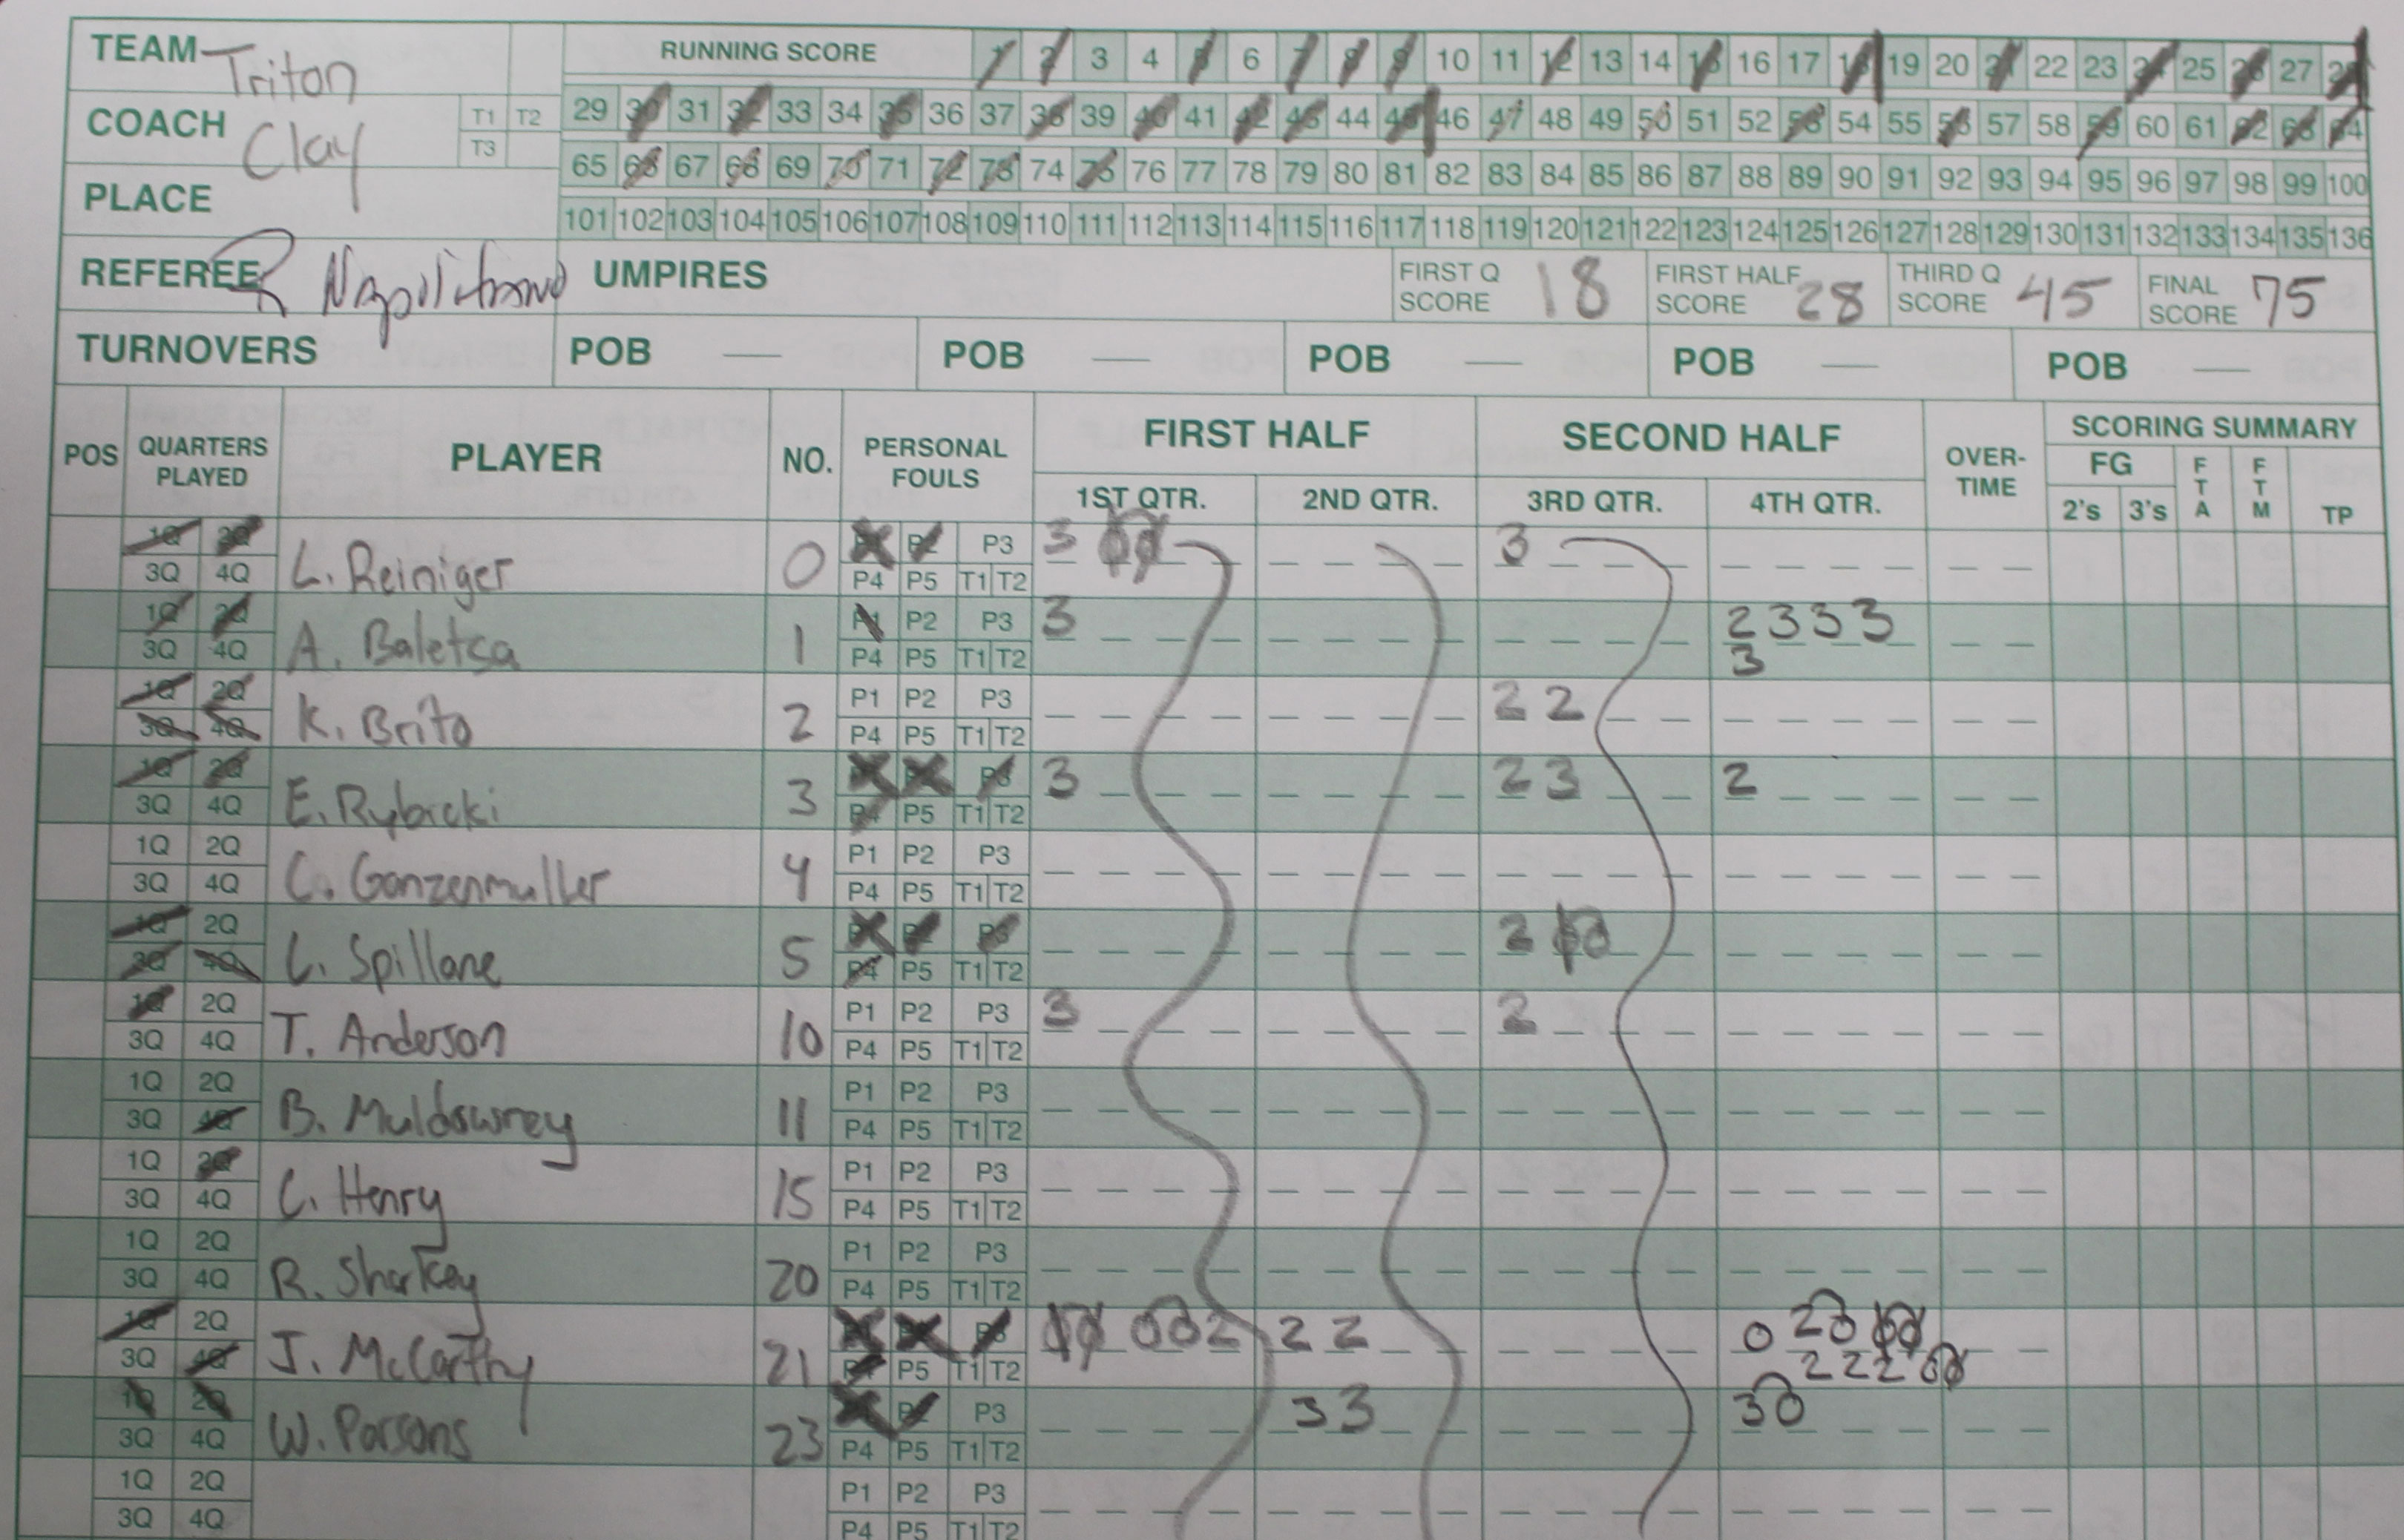 TEAM Triton
RUNNING SCORE 1 2 3 4 5 6 7 8 9 10 11 12 13 14 15 16 17 18 19 20 21 22 23 24 25 26 27 28
COACH Clay T1 T2 T3
29 30 31 32 33 34 35 36 37 38 39 40 41 42 43 44 45 46 47 48 49 50 51 52 53 54 55 56 57 58 59 60 61 62 63 64
65 66 67 68 69 70 71 72 73 74 75 76 77 78 79 80 81 82 83 84 85 86 87 88 89 90 91 92 93 94 95 96 97 98 99 100
PLACE
101 102 103 104 105 106 107 108 109 110 111 112 113 114 115 116 117 118 119 120 121 122 123 124 125 126 127 128 129 130 131 132 133 134 135 136
REFEREE R Napolitano UMPIRES FIRST Q SCORE 18 FIRST HALF SCORE 28 THIRD Q SCORE 45 FINAL SCORE 75
TURNOVERS POB — POB — POB — POB — POB —
POS QUARTERS PLAYED PLAYER NO. PERSONAL FOULS FIRST HALF SECOND HALF OVER-TIME SCORING SUMMARY
1ST QTR. 2ND QTR. 3RD QTR. 4TH QTR. FG 2's 3's FTA FTM TP
1Q 2Q 3Q 4Q L. Reiniger 0 P1 P2 P3 P4 P5 T1 T2 3 00 3
1Q 2Q 3Q 4Q A. Baletsa 1 P1 P2 P3 P4 P5 T1 T2 3 2 3 3 3 3
1Q 2Q 3Q 4Q K. Brito 2 P1 P2 P3 P4 P5 T1 T2 2 2
1Q 2Q 3Q 4Q E. Rybicki 3 P1 P2 P3 P4 P5 T1 T2 3 2 3 2
1Q 2Q 3Q 4Q C. Ganzenmuller 4 P1 P2 P3 P4 P5 T1 T2
1Q 2Q 3Q 4Q L. Spillane 5 P1 P2 P3 P4 P5 T1 T2 2 00
1Q 2Q 3Q 4Q T. Anderson 10 P1 P2 P3 P4 P5 T1 T2 3 2
1Q 2Q 3Q 4Q B. Muldowney 11 P1 P2 P3 P4 P5 T1 T2
1Q 2Q 3Q 4Q C. Henry 15 P1 P2 P3 P4 P5 T1 T2
1Q 2Q 3Q 4Q R. Sharkey 20 P1 P2 P3 P4 P5 T1 T2
1Q 2Q 3Q 4Q J. McCarthy 21 P1 P2 P3 P4 P5 T1 T2 00 00 2 2 2 0 2 0 00 2 2 2 00
1Q 2Q 3Q 4Q W. Parsons 23 P1 P2 P3 P4 P5 T1 T2 3 3 3 0
1Q 2Q 3Q 4Q P1 P2 P3 P4 P5 T1 T2